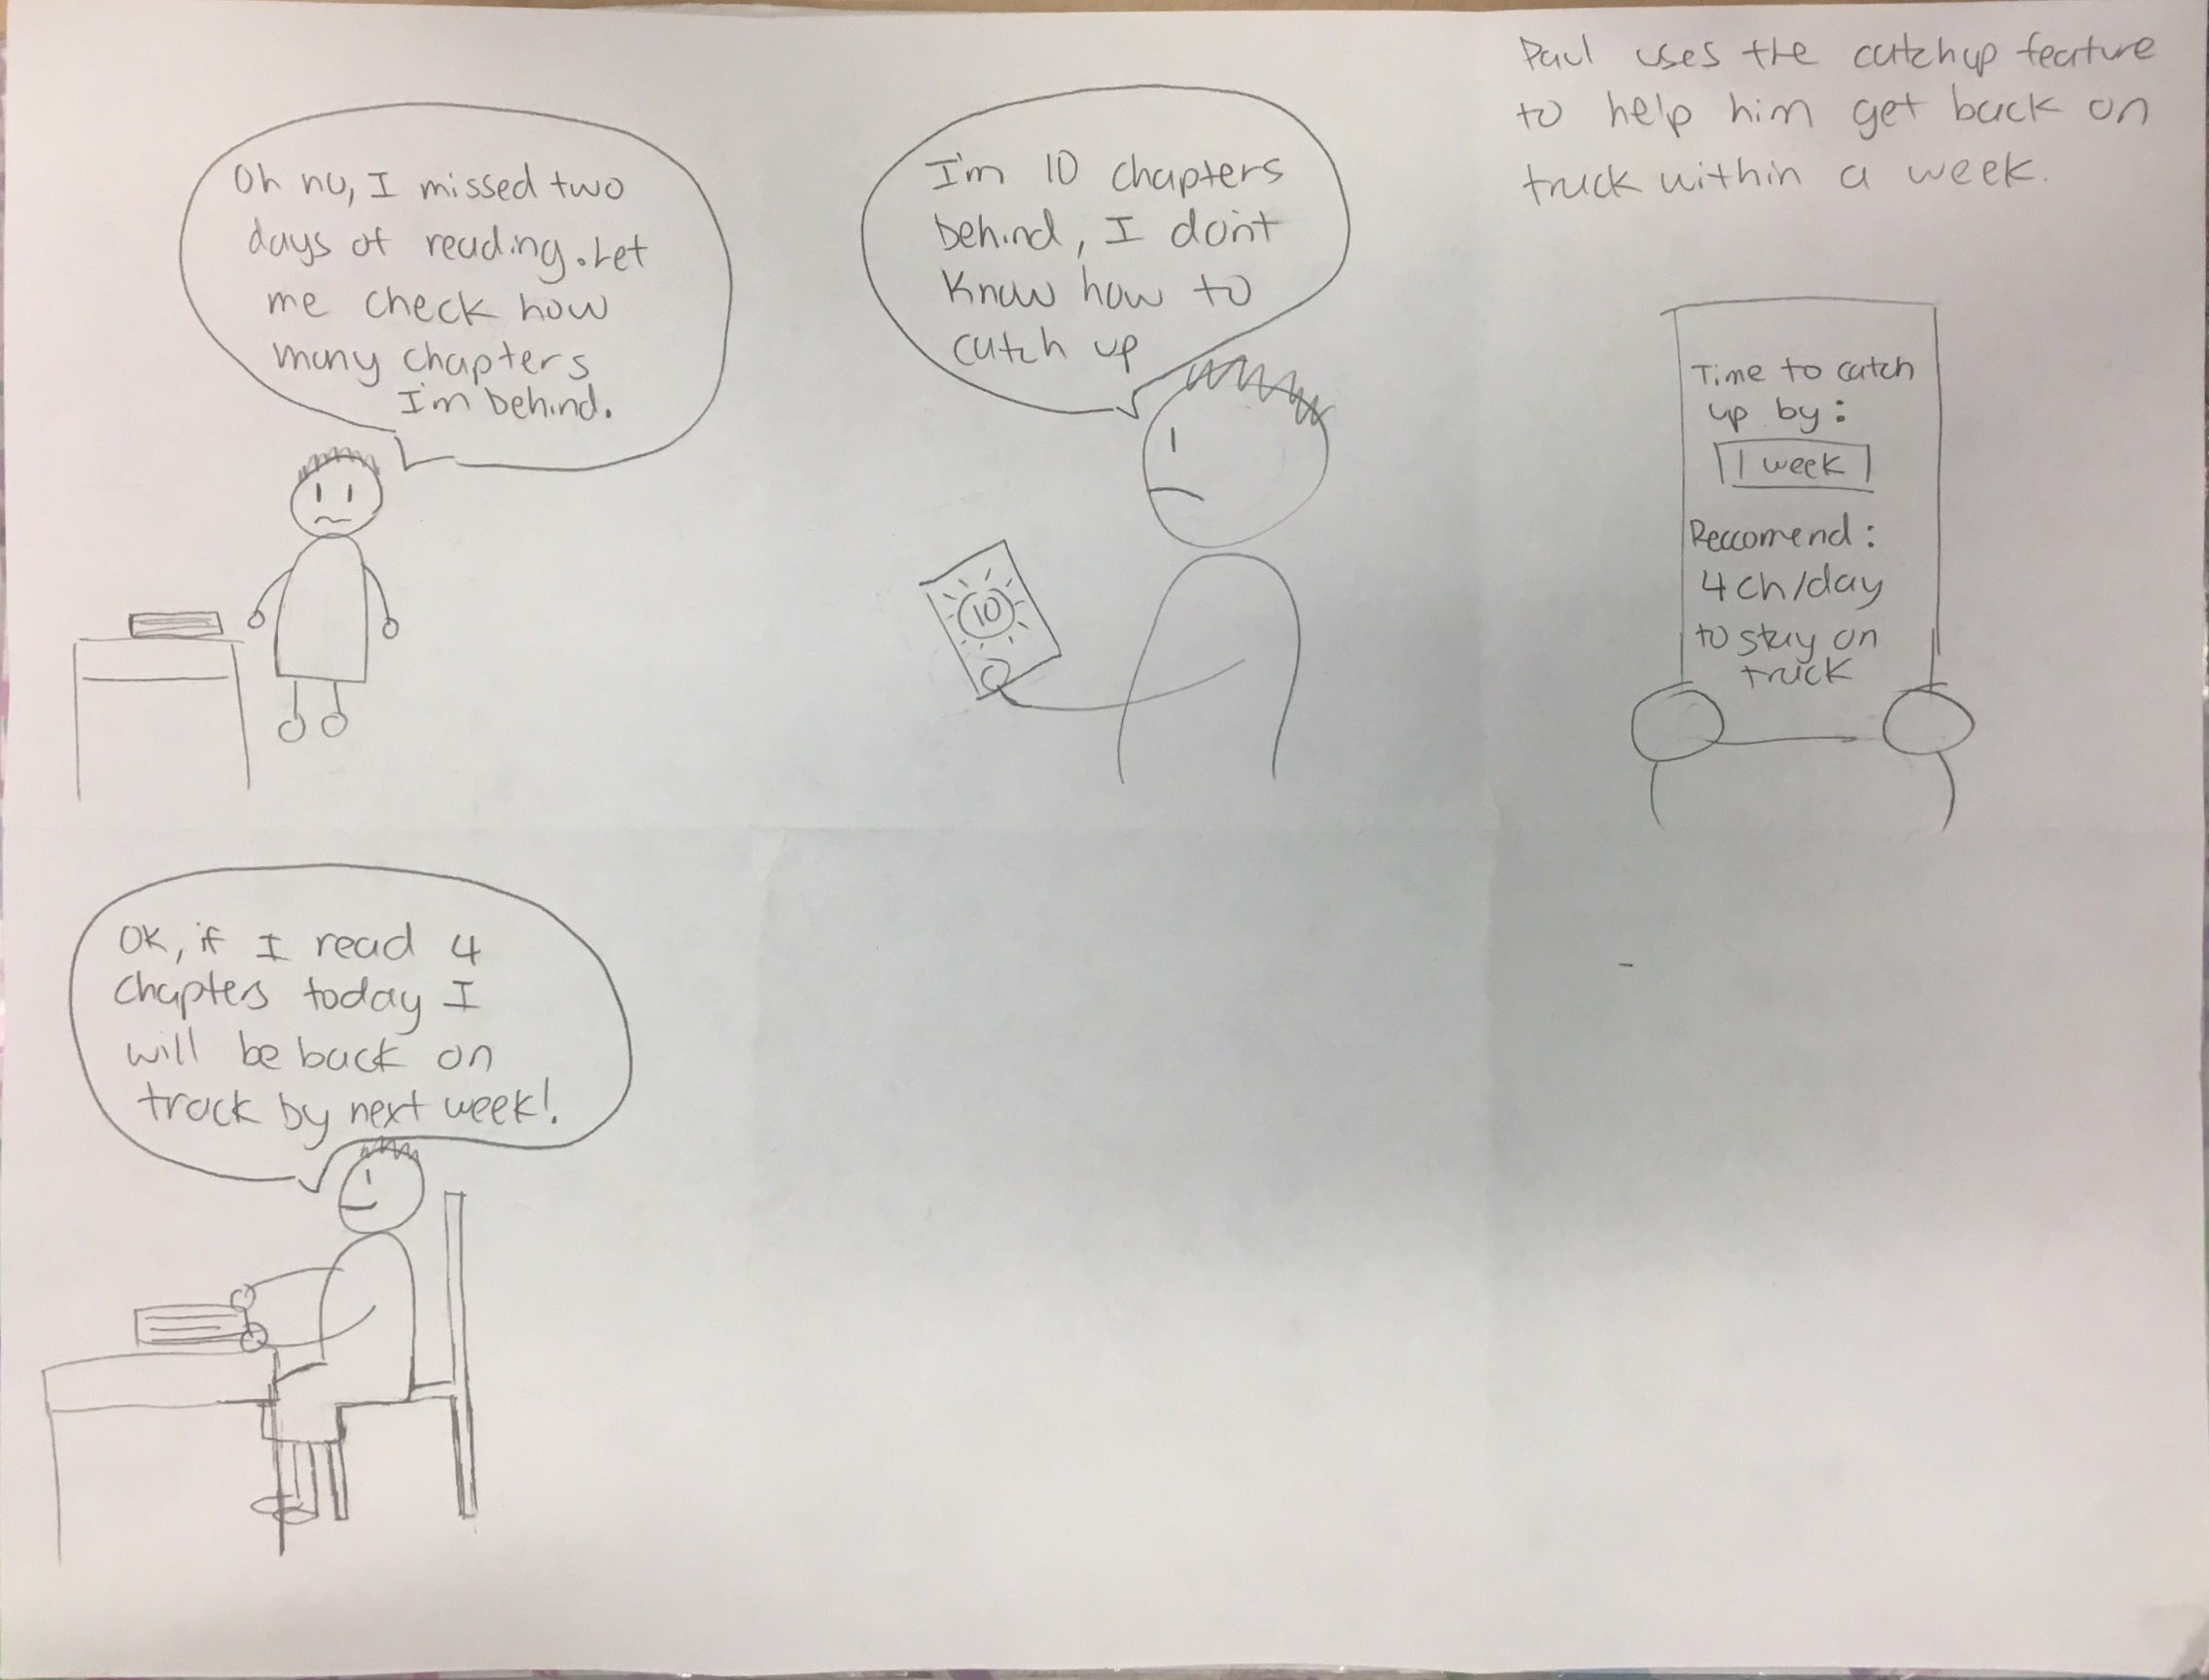 Oh no, I missed two
days of reading. Let
me check how
many chapters
I'm behind.
I'm 10 chapters
behind, I don't
know how to
catch up
10
Paul uses the catchup feature
to help him get back on
track within a week.
Time to catch
up by:
1 week
Reccomend:
4 ch/day
to stay on
track
OK, if I read 4
chapters today I
will be back on
track by next week!